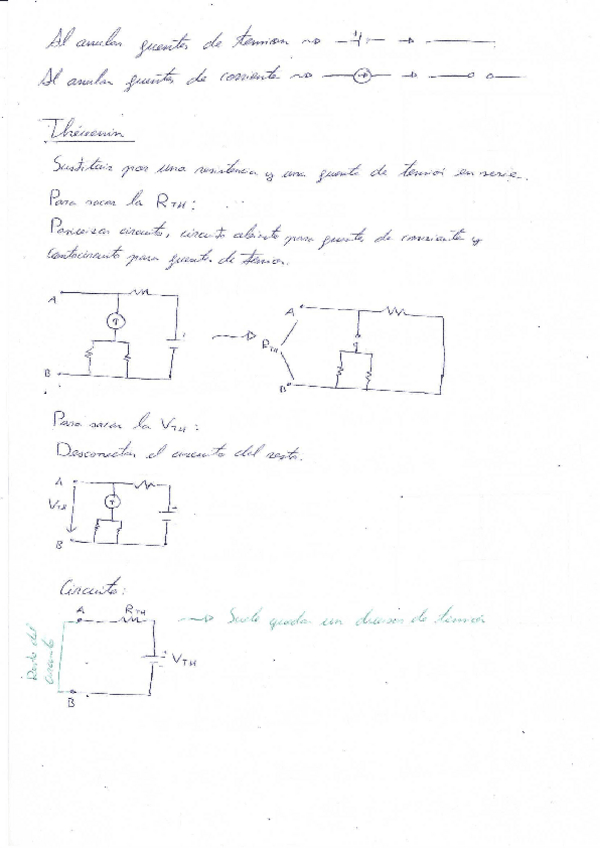 Al anular fuentes de tension
Al anular fuentes de corriente
Thévenin
Sustituir por una resistencia y una fuente de tensión en serie.
Para sacar la RTH:
circuito, circuito abierto para fuentes de corriente y
Cortocircuito para fuentes de tension.
A
B
A
RTH
B
Para sacar la VTH:
Desconectar el circuito del resto.
A
VTH
B
Circuito:
A RTH
VTH
B
Resto del
circuito
Suele quedar un divisor de tensión